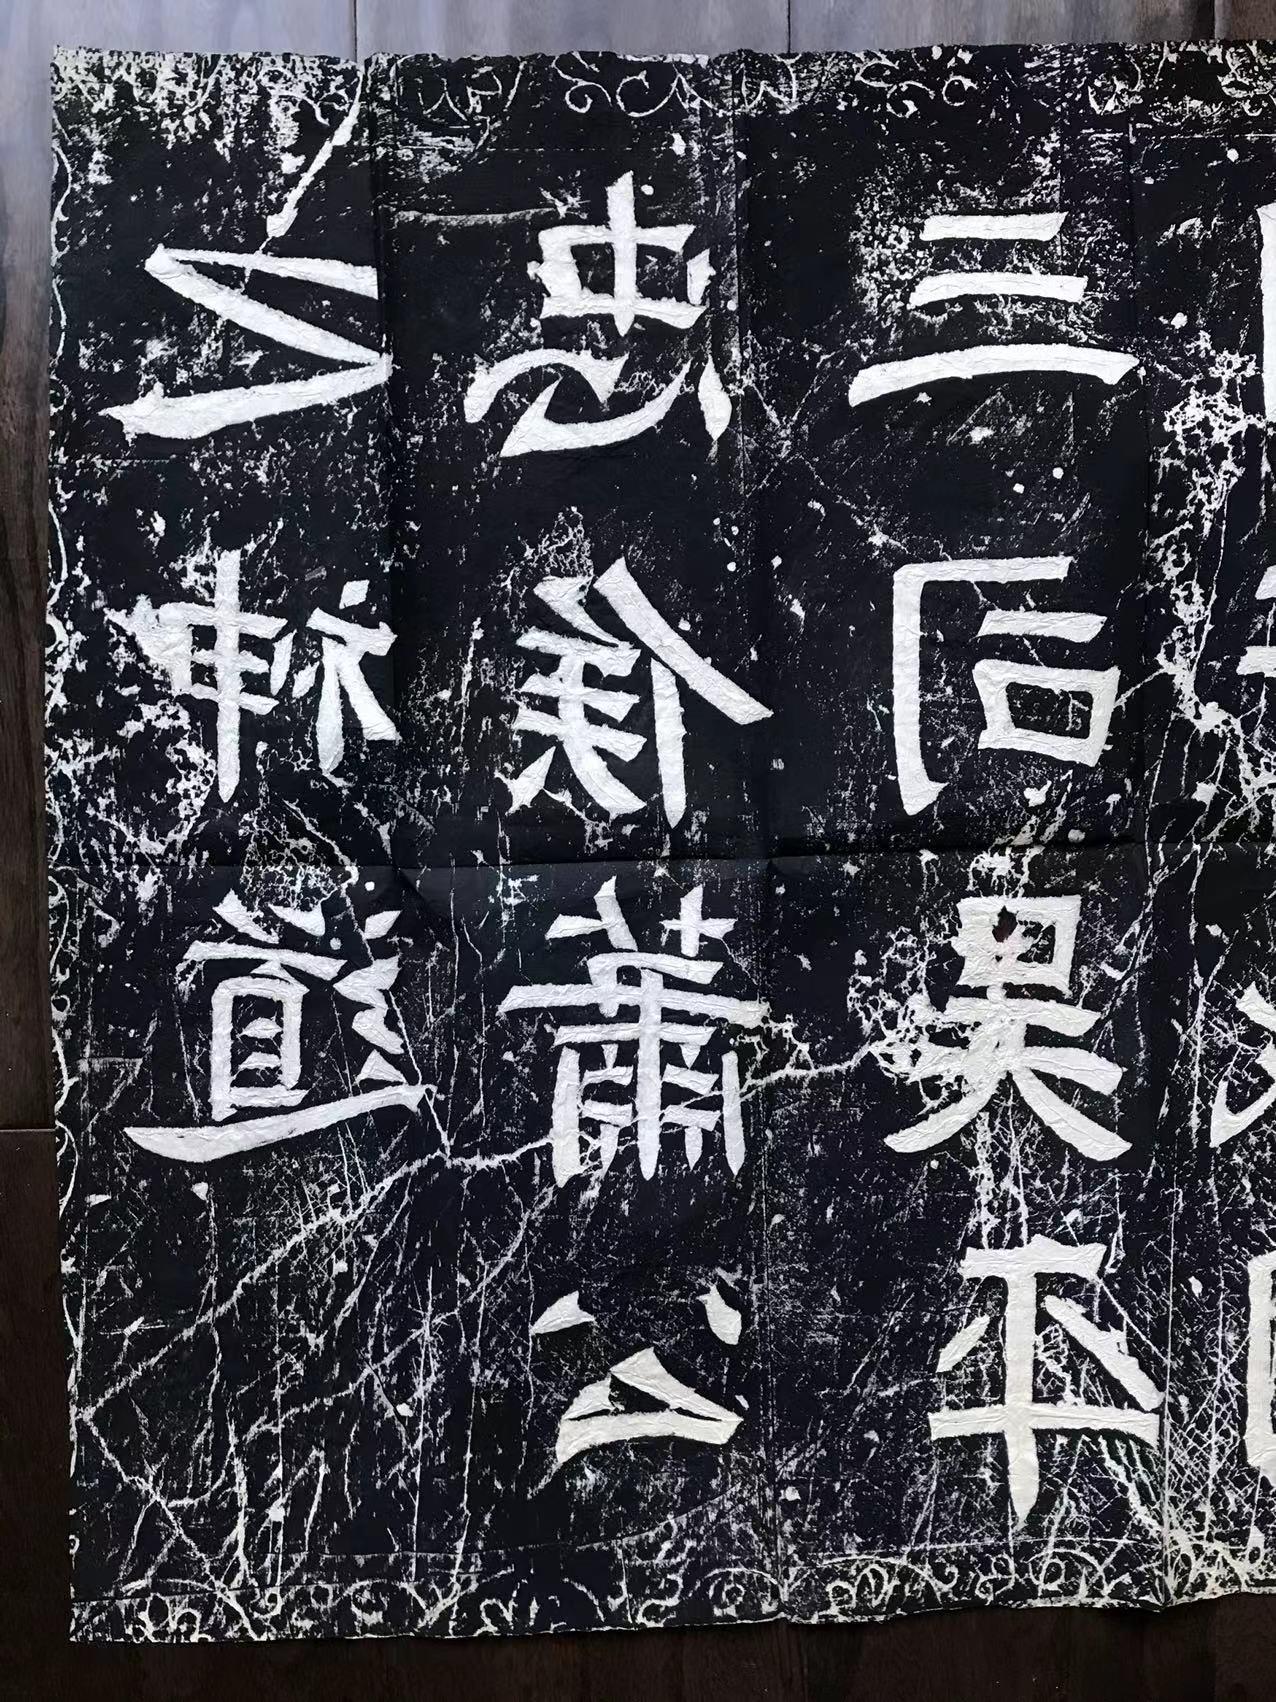 三司吳平
忠侯蕭公
之神道